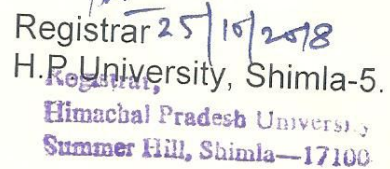 Registrar 25/10/2018
H.P. University, Shimla-5.
Registrar,
Himachal Pradesh University
Summer Hill, Shimla—17100